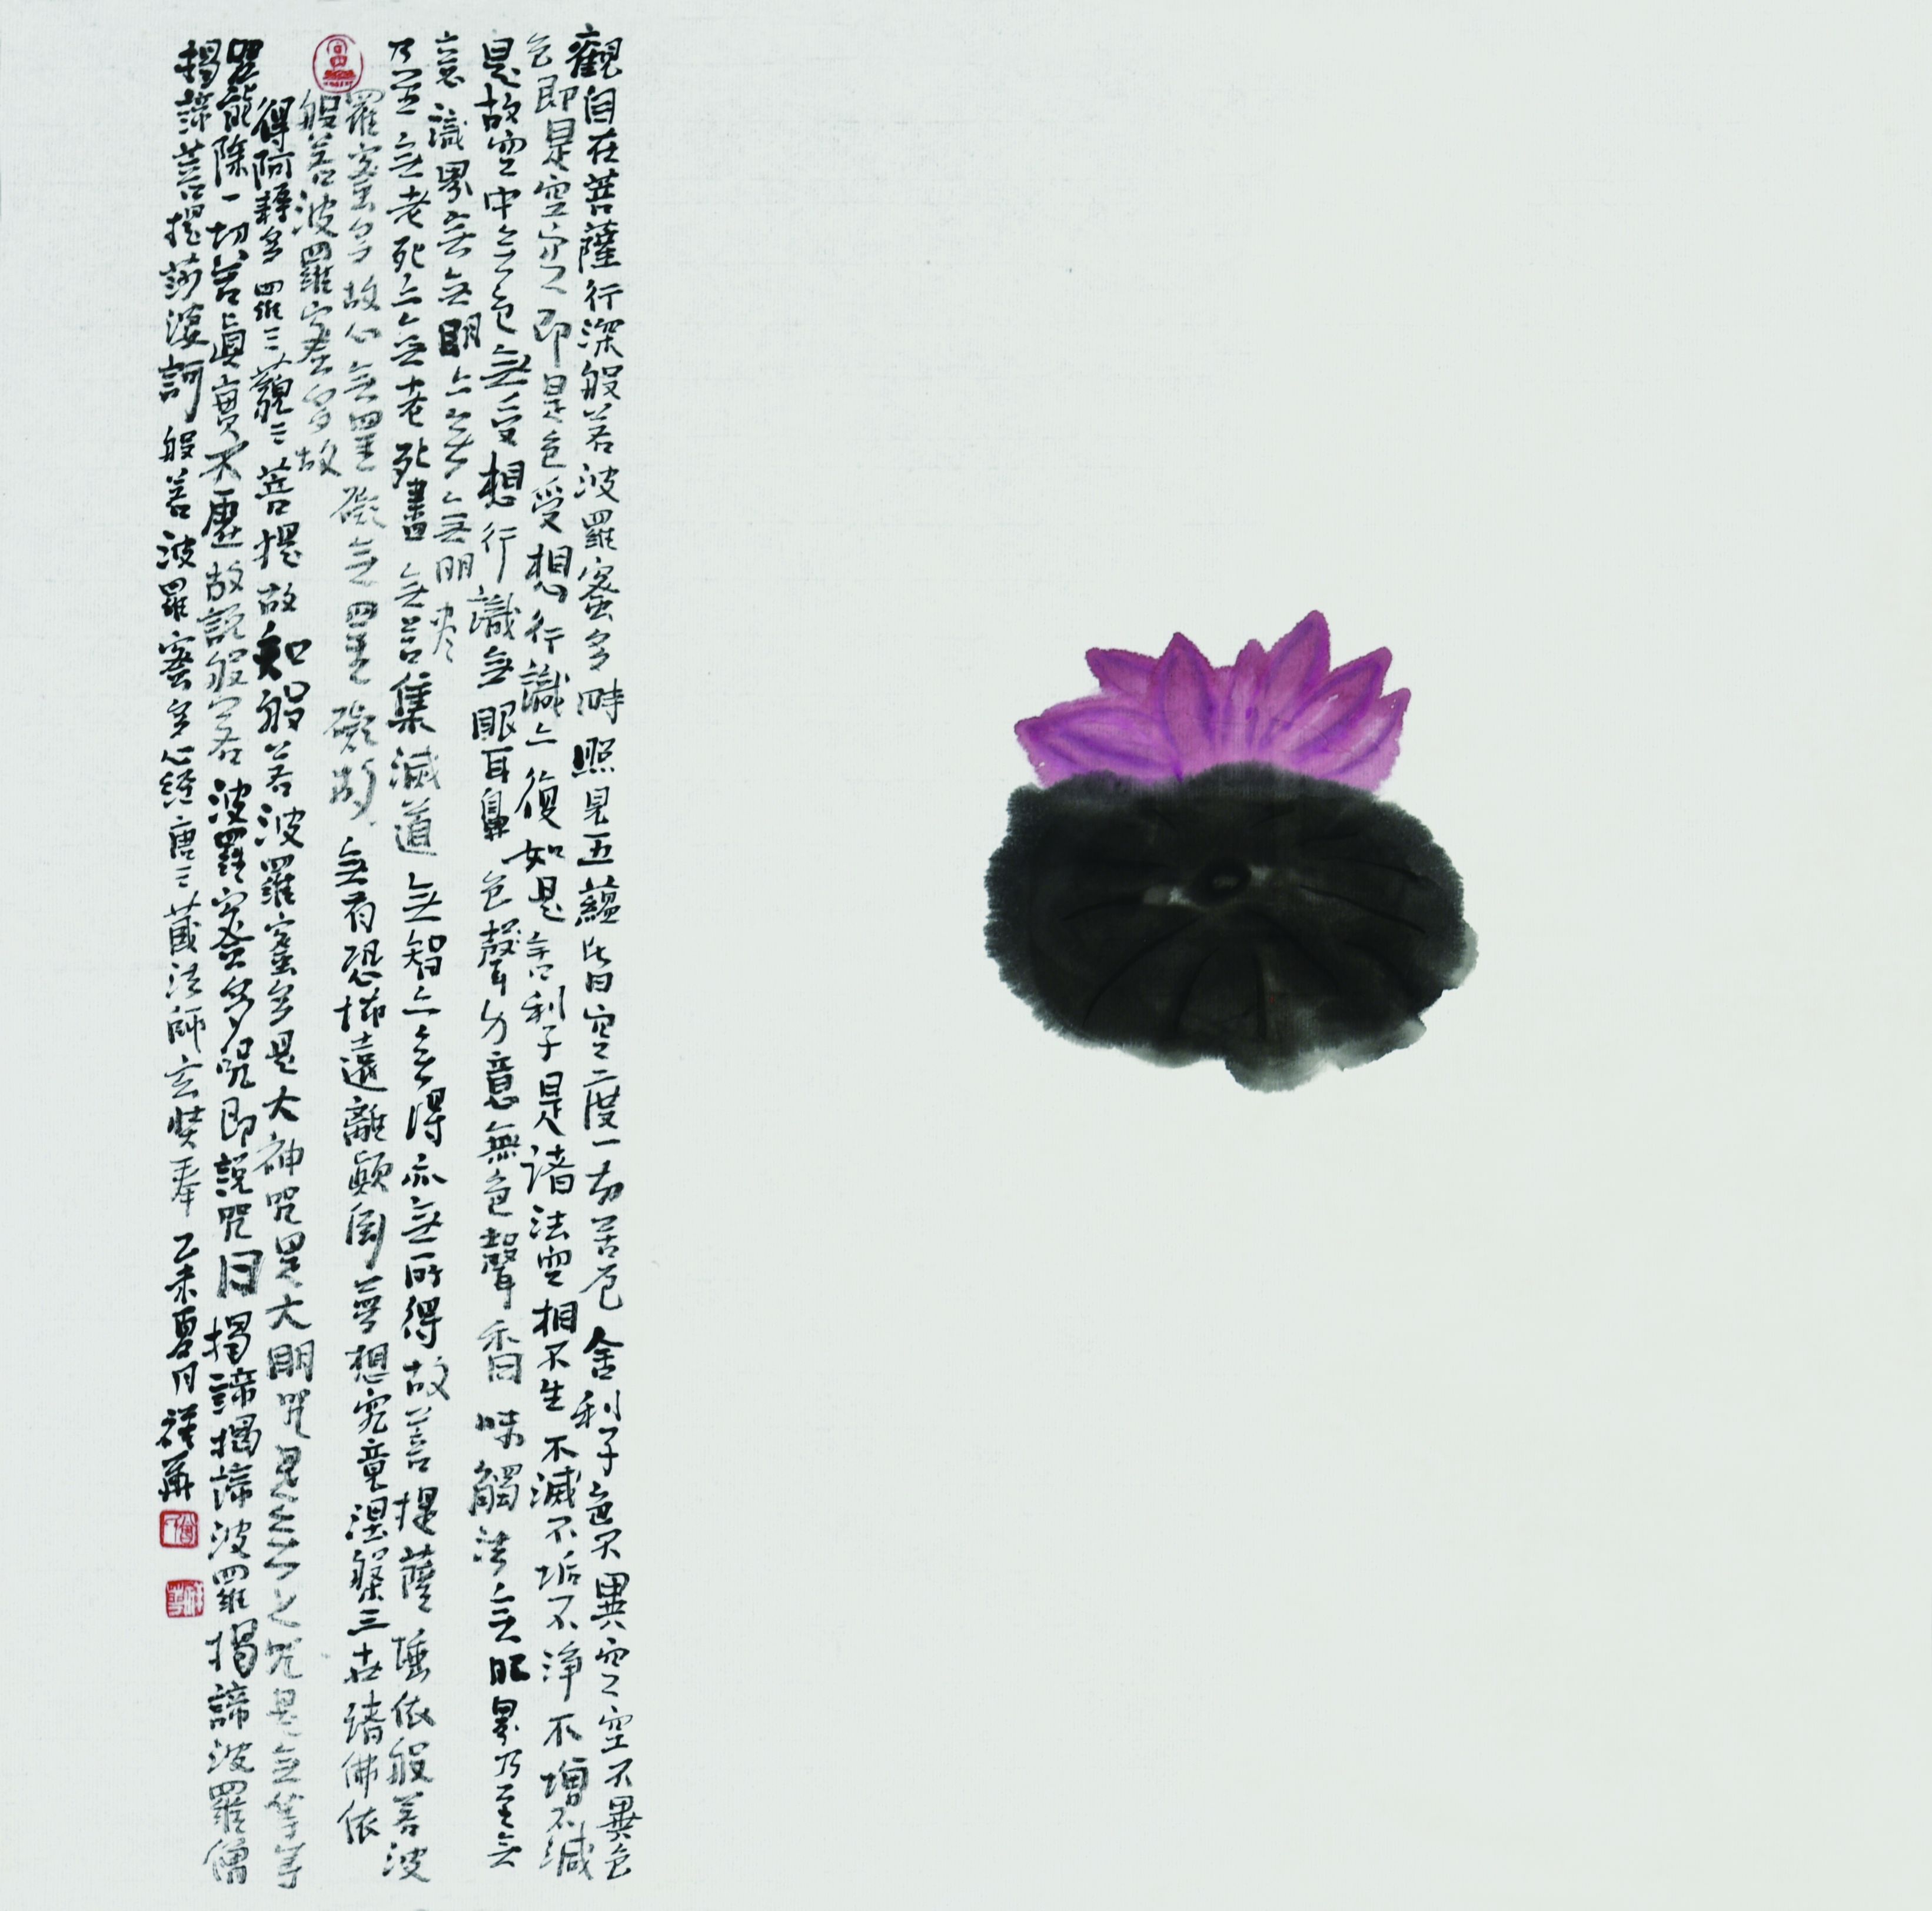 觀自在菩薩行深般若波羅蜜多時照見五蘊皆空二度一切苦厄舍利子色不異空之空不異色
色即是空空即是色受想行識亦復如是舍利子是諸法空相不生不滅不垢不淨不增不減
是故空中無色無受想行識無眼耳鼻色聲身意無色聲香味觸法無眼界乃至無
意識界無無明亦無亦無明尽
乃至無老死亦無老死盡無苦集滅道無智亦無得亦無所得故菩提薩埵依般若波
羅蜜多故心無罣礙無罣礙故無有恐怖遠離顛倒夢想究竟涅槃三世諸佛依
般若波羅蜜多故
得阿耨多羅三藐三菩提故知般若波羅蜜多是大神咒是大明咒是無上咒是無等等
咒能除一切苦真實不虛故說般若波羅蜜多咒即說咒曰揭諦揭諦波羅揭諦波羅僧
揭諦菩提莎婆訶般若波羅蜜多心經唐三藏法師玄奘奉乙未夏月祥華